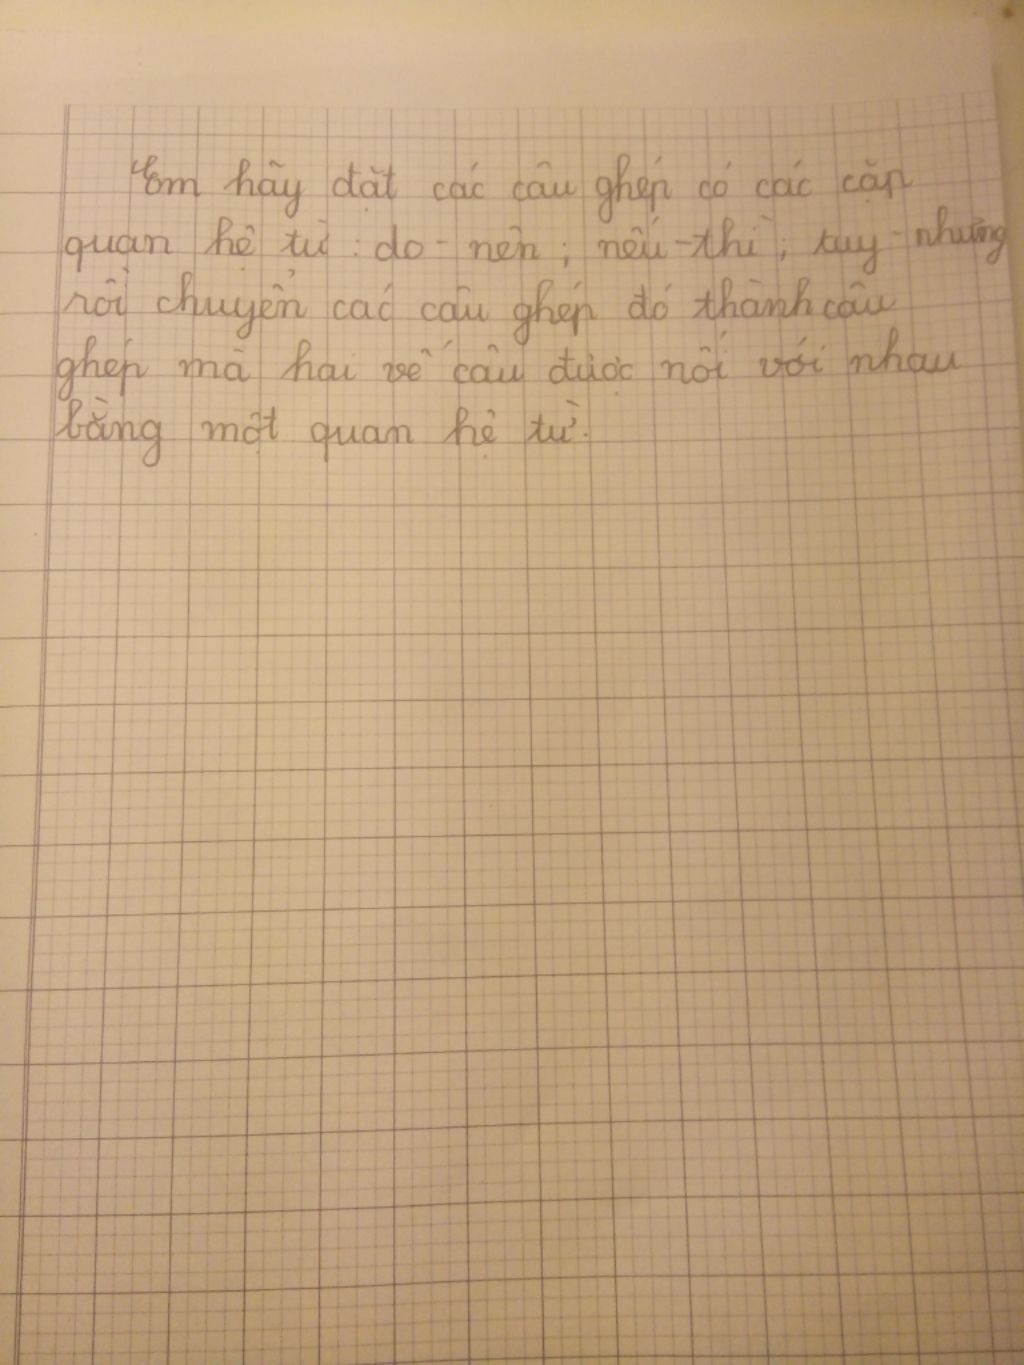 Em hãy đặt các câu ghép có các cặp
quan hệ từ: do - nên; nếu - thì; tuy - nhưng
rồi chuyển các câu ghép đó thành câu
ghép mà hai vế câu được nối với nhau
bằng một quan hệ từ.